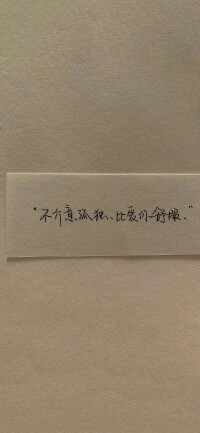 “不介意孤独、比爱你舒服.”